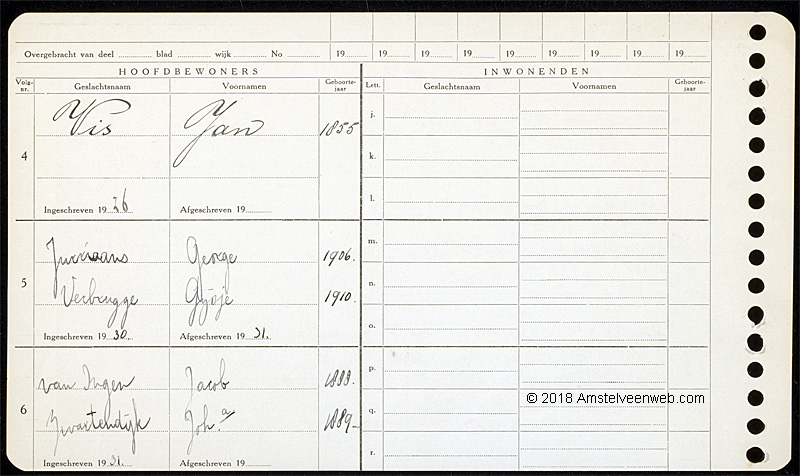 Overgebracht van deel blad wijk No 19 19 19 19 19 19 19 19 19
HOOFDBEWONERS INWONENDEN
Volg-nr. Geslachtsnaam Voornamen Geboorte-jaar Lett. Geslachtsnaam Voornamen Geboorte-jaar
4 Vis Jan 1855 j.
k.
l.
Ingeschreven 19 26 Afgeschreven 19
5 Jurriaans George 1906. m.
Verbrugge 1910. n.
o.
Ingeschreven 19 30. Afgeschreven 19 31.
6 van Ingen Jacob 1888. p.
Zwartendijk Joh.a 1889 q.
r.
Ingeschreven 19 31. Afgeschreven 19
© 2018 Amstelveenweb.com